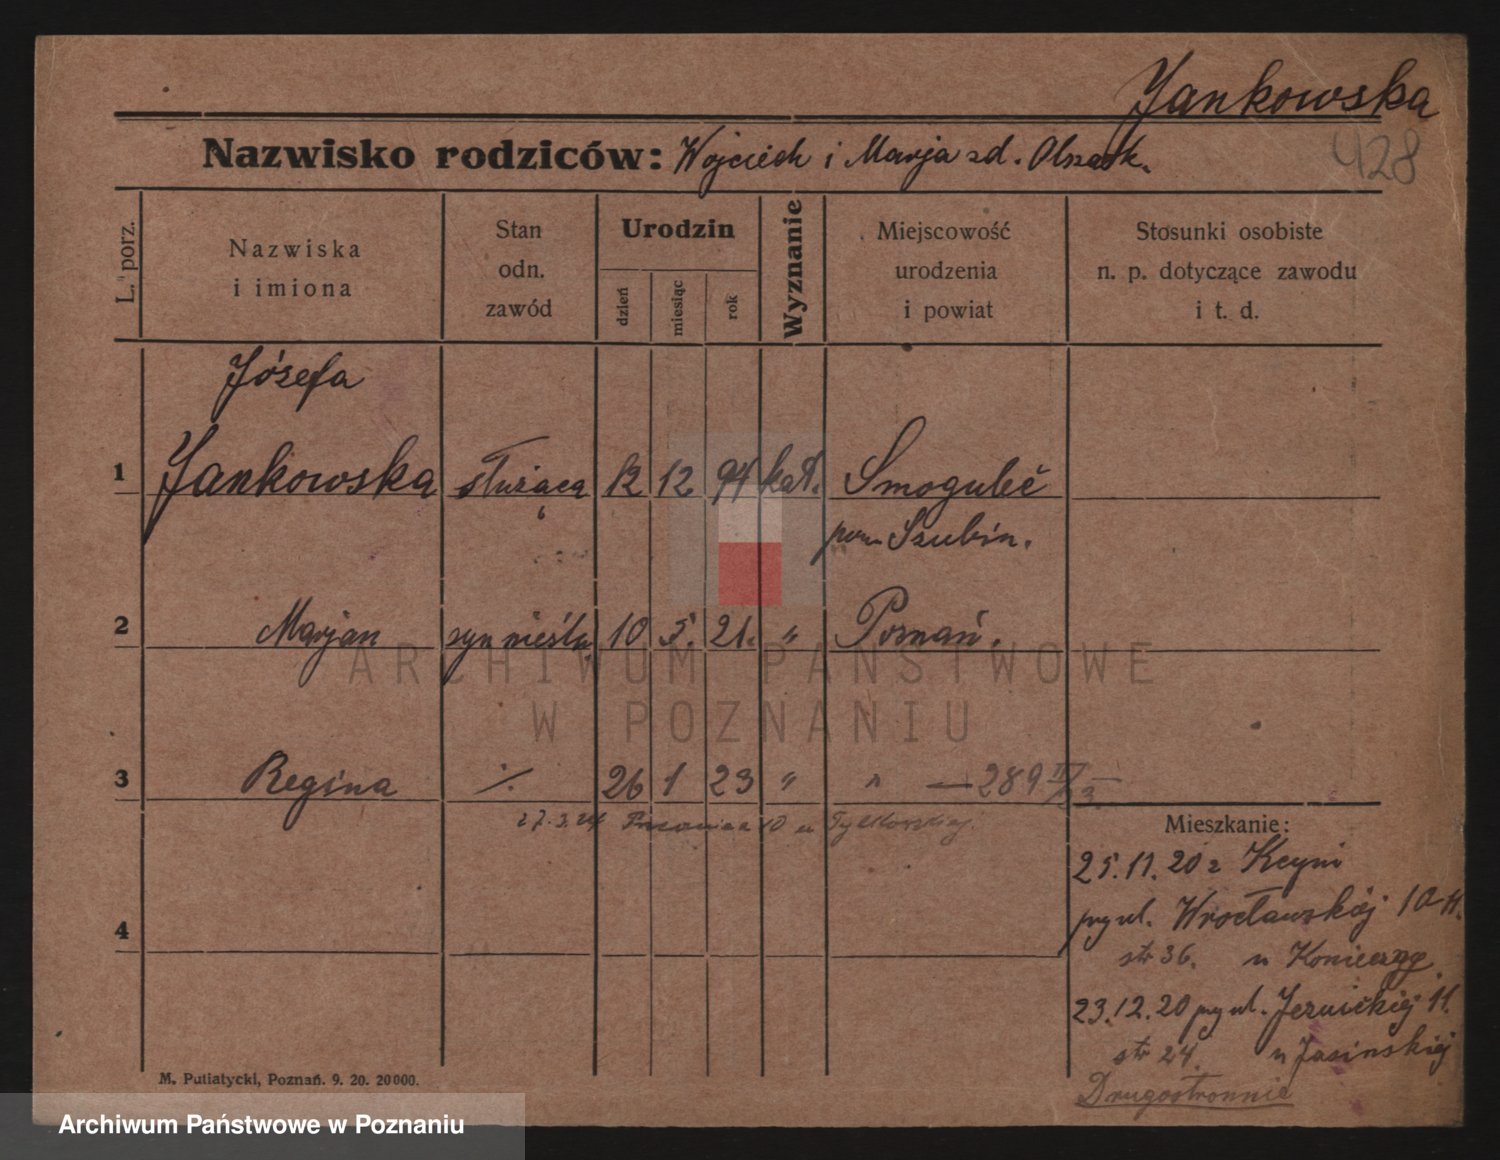 Jankowska
428
Nazwisko rodziców: Wojciech i Marja zd. Olszak.
L. porz.
Nazwiska
i imiona
Stan
odn.
zawód
Urodzin
dzień
miesiąc
rok
Wyznanie
Miejscowość
urodzenia
i powiat
Stosunki osobiste
n. p. dotyczące zawodu
i t. d.
Józefa
1 Jankowska służąca 12 12 94 kat. Smoguleć
pow. Szubin.
2 Marjan syn nieślu. 10 5. 21. " Poznań.
ARCHIWUM PAŃSTWOWE
W POZNANIU
3 Regina ./. 26 1 23 " " — 289
27.3.24 10 u Tylkowskiej.
Mieszkanie:
25.11.20 z Kcyni
przy ul. Wrocławskiej 10 II.
str 36. u
4
23.12.20 przy ul. Jezuickiej 11.
str 24. u Jasińskiej
Drugostronnie
M. Putiatycki, Poznań. 9. 20. 20000.
Archiwum Państwowe w Poznaniu